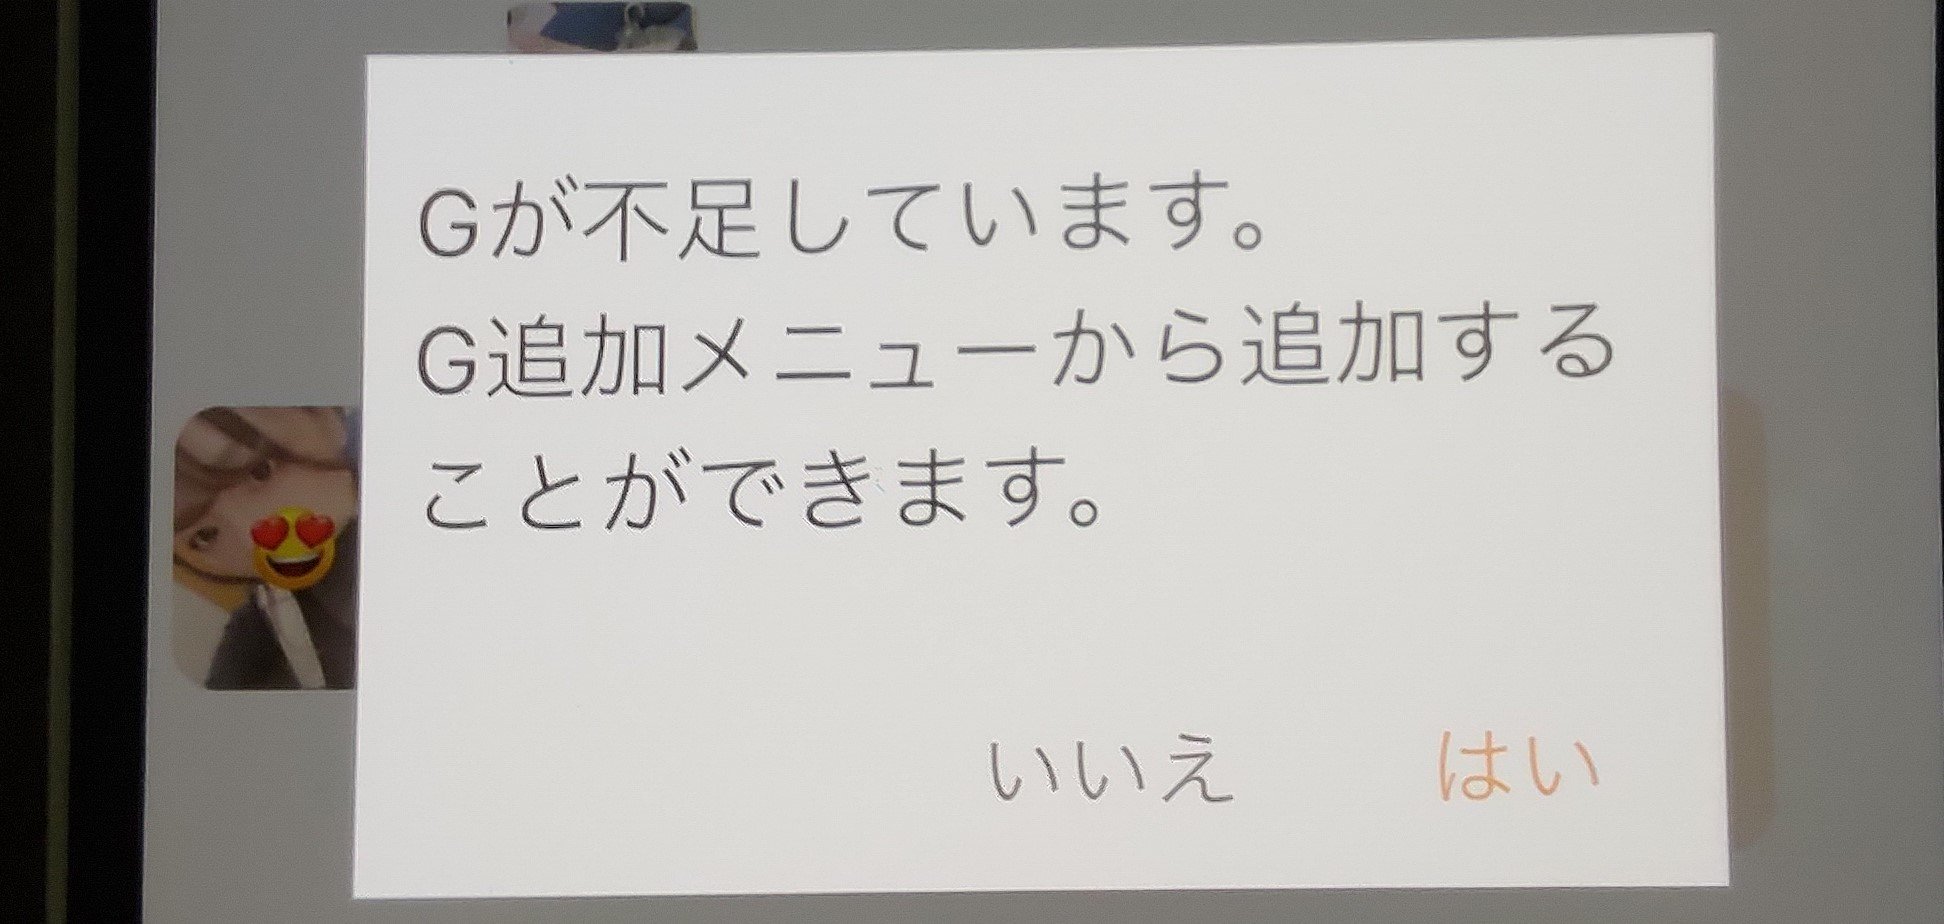 Gが不足しています。
G追加メニューから追加する
ことができます。
いいえ はい